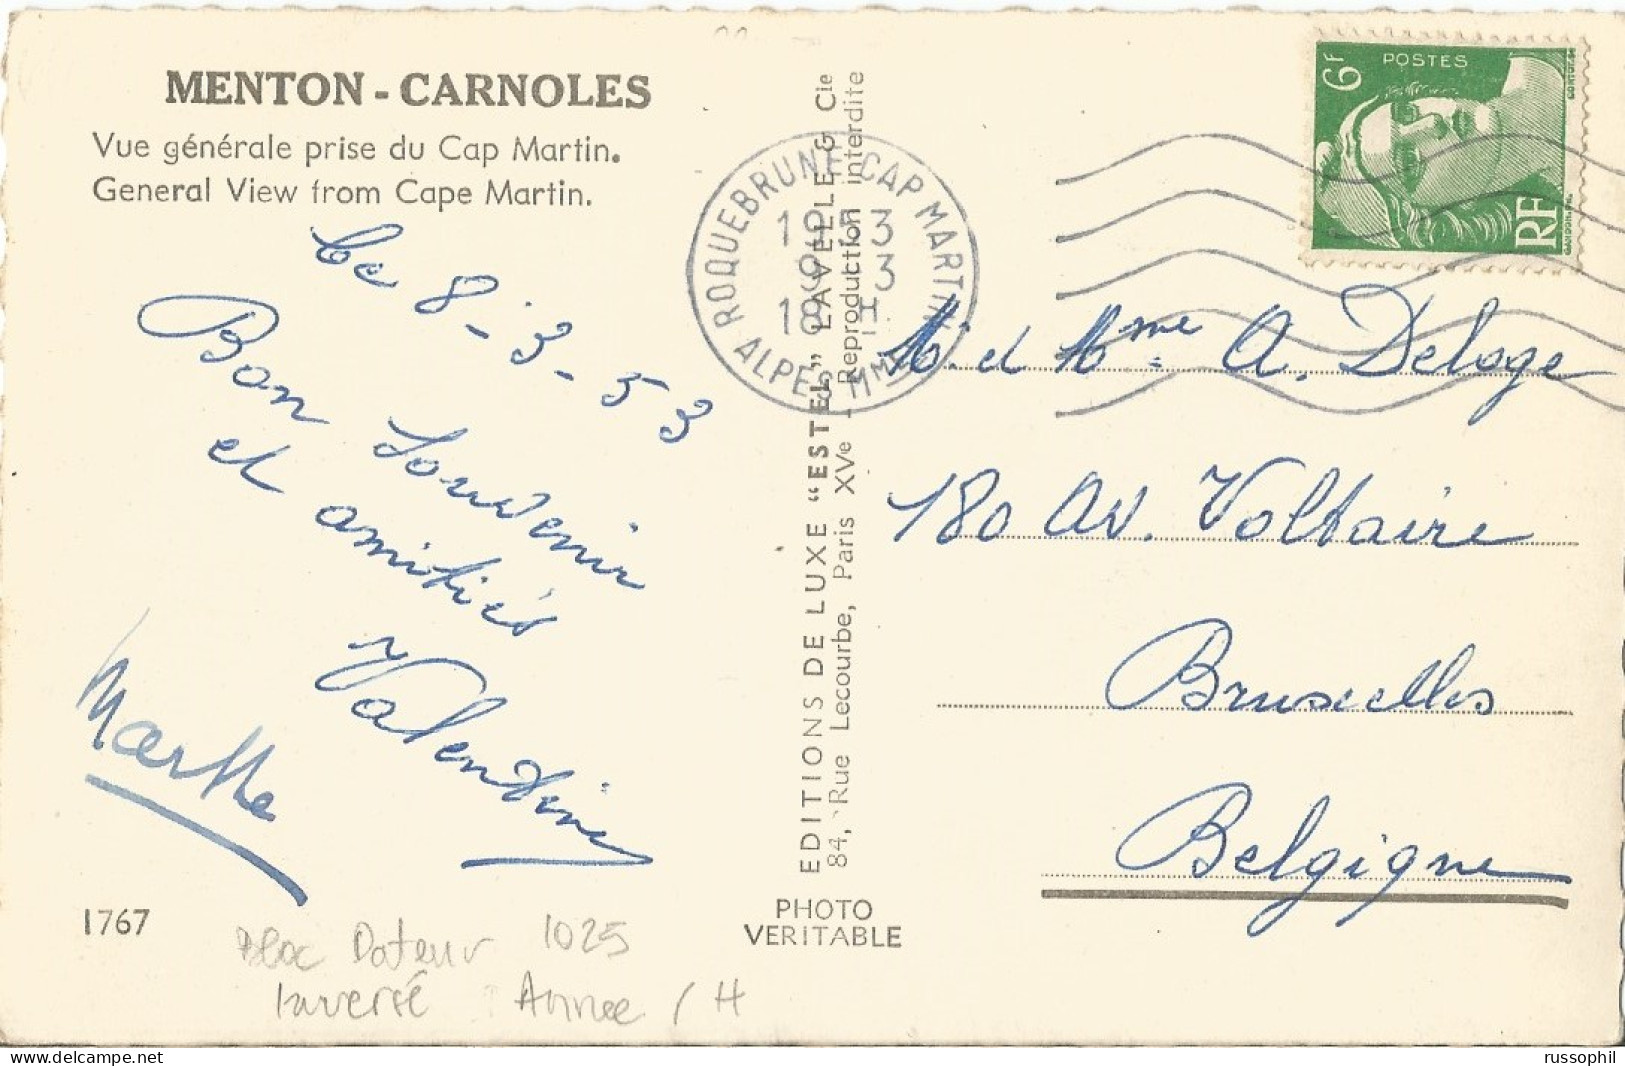 MENTON - CARNOLES
Vue générale prise du Cap Martin.
General View from Cape Martin.
Ce 8-3-53
Bon Souvenir
et amitiés
Valentine
Marthe
1767
Bloc Dateur 1025
Inversé Année / H
EDITIONS DE LUXE "ESTEL" LAVELLE & Cie
84, Rue Lecourbe, Paris XVe - Reproduction interdite
PHOTO
VERITABLE
ROQUEBRUNE CAP MARTIN
1953
9 3
18 H
ALPES Mmes
POSTES
6F
RF
M. et Mme A. Deloge
180 Av. Voltaire
Bruxelles
Belgique
russophil